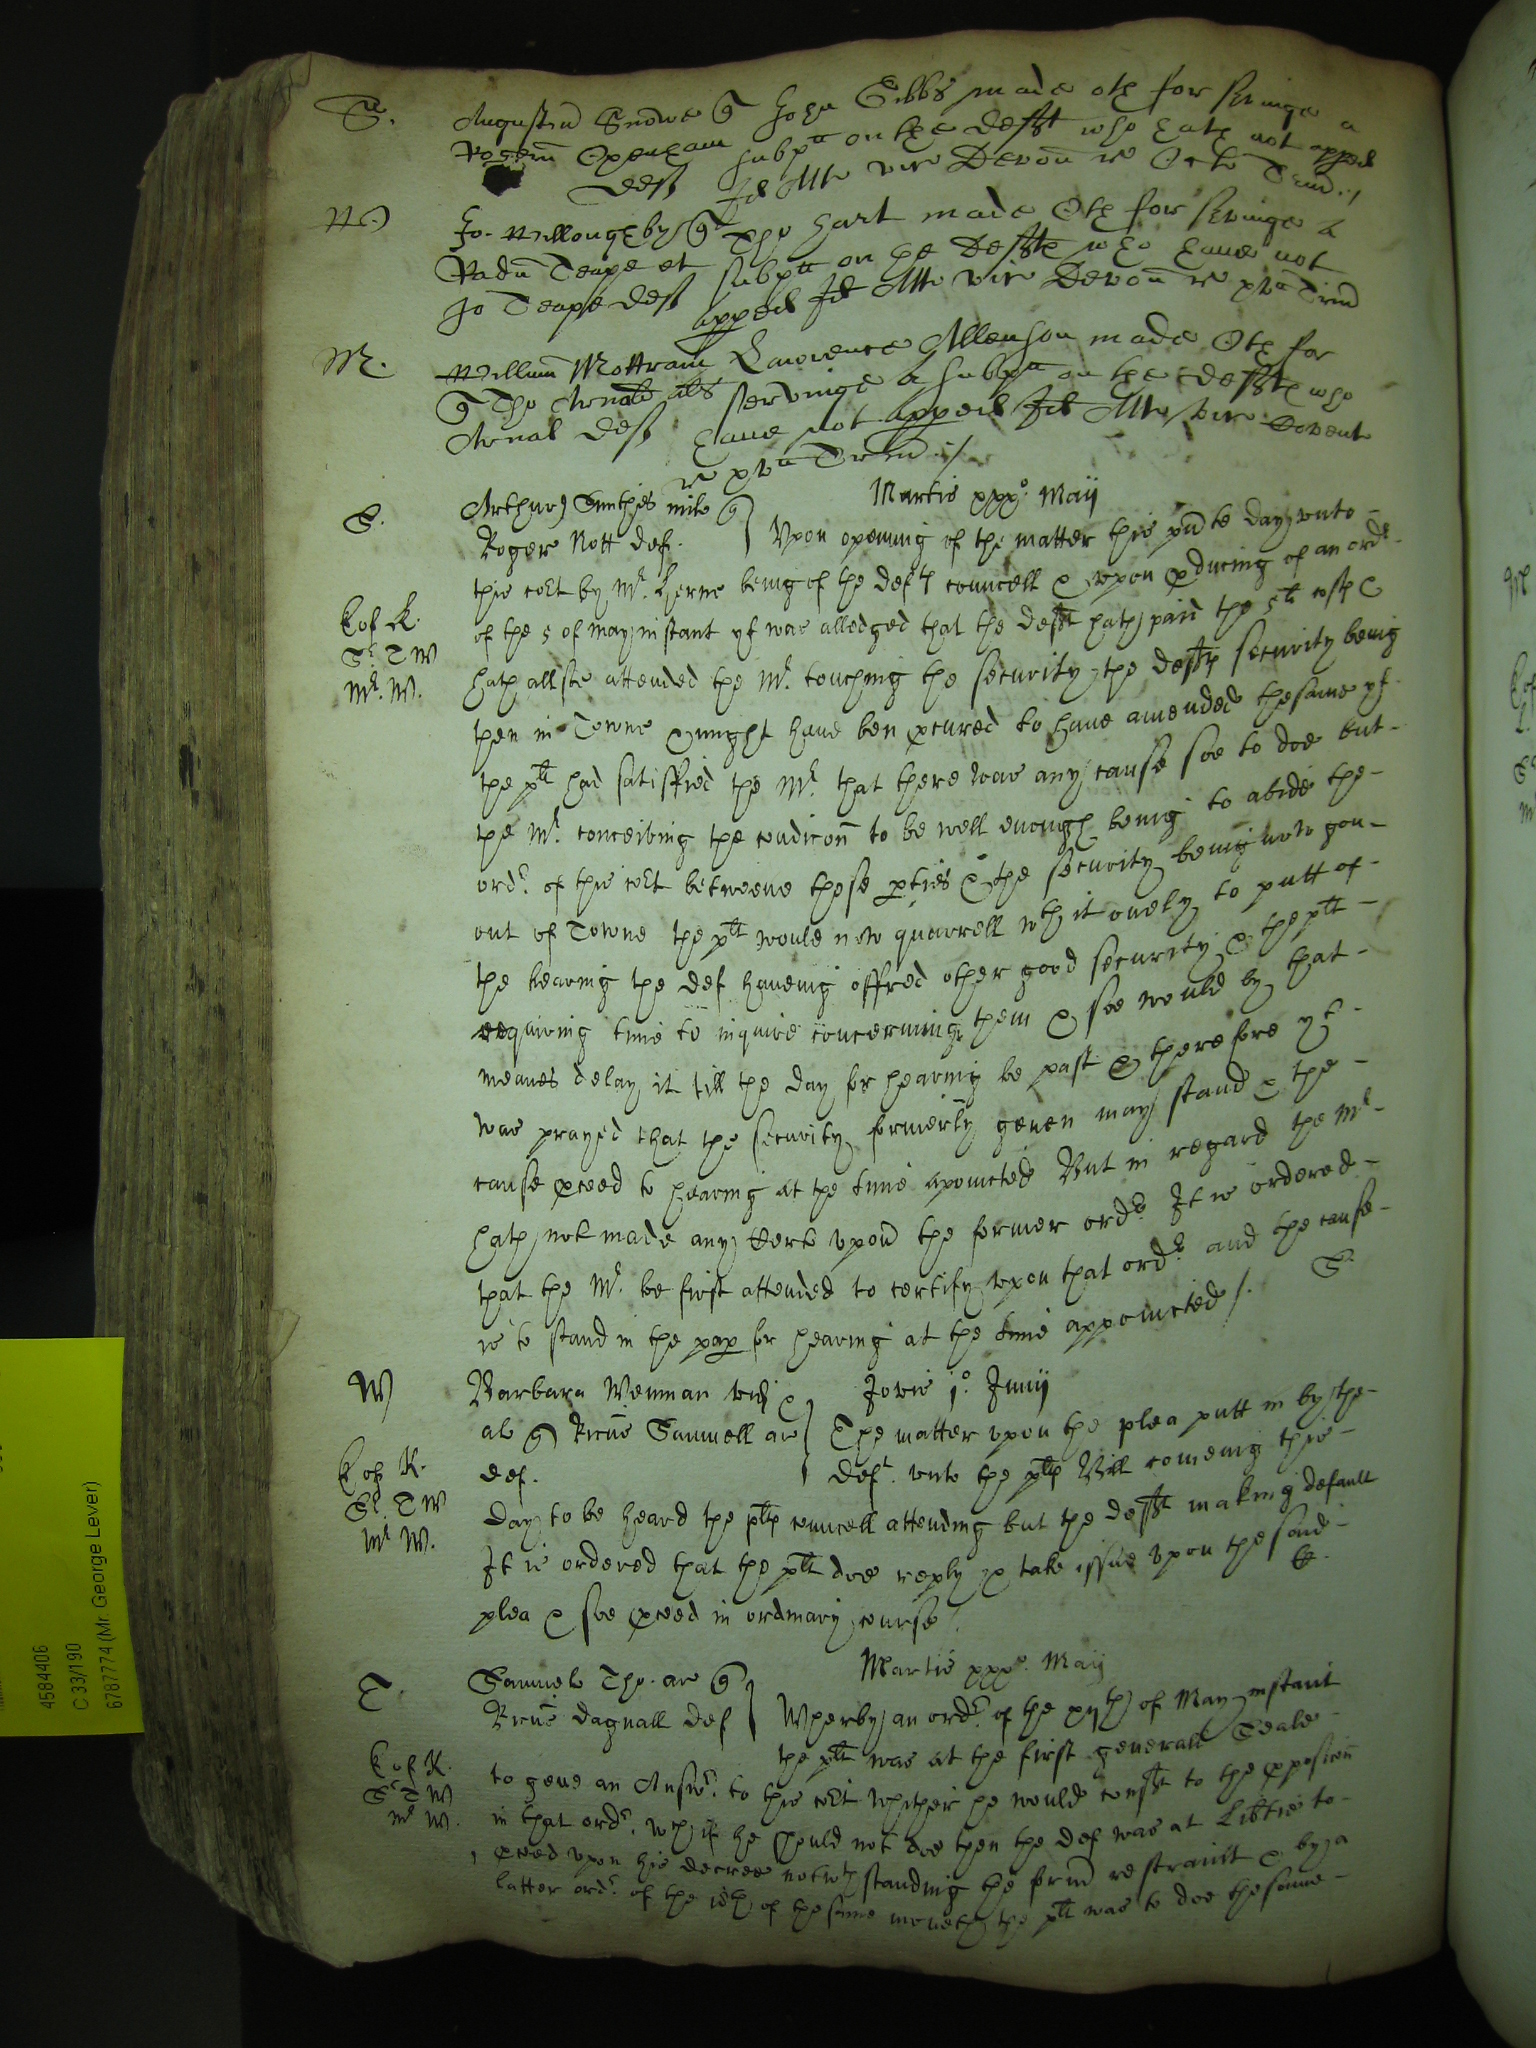 S. Augustin Snowe q John Gibbs made oth for servinge a
Rogerū Oxenham subpᵃ on the defft who hath not apped
deft Id Att vic Devon re Octo Trin ./
W Jo. Willoughby q Tho hart made Oth for servinge a
Radū Teape et subpᵃ on the deffts who haue not
Jo Teape deft apped Id Att vic Devon re xvᵃ Trin
M. Willum Mottram Lawrence Allenson made Oth for
q Tho Arnald als servinge a subpᵃ on the deffts who
Arnal deft haue not apped Id Att vic Covent
re xvᵃ Trin ./
Martis xxx° Maij
S. Arthur Smithes mil q
Roger Nott def. Vpon opening of the matter this pn̄te day vnto
this cort by Mr. Herne being of the defts councell & vpon pducing of an ordr
K of R.
Sr. T W
Mr. W.
of the 5 of may instant yt was alledged that the defft hath paid the 5li costs &
hath allsoe attended the Mr. touching the security, the defts security being
then in Towne & might haue ben pcured to haue amended the same yf
the plt had satisfied the Mr. that there was any cause soe to doe but
the Mr. conceiving the condicon to be well enough being to abide the
ordr. of this cort betweene those pties & the security being now gon
out of Towne the plt would now quarrell wth it onely to putt of
the hearing the def haueing offred other good security & the plt
requiring time to inquire concerning them & soe would by that
meanes delay it till the day for hearing be past & therefore yt
was prayed that the security formerly geuen may stand & the
cause pceed to hearing at the time apointed But in regard the Mr
hath not made any Certe vpon the former ordr. It is ordered
that the Mr. be first attended to certify vpon that ordr. and the cause
is to stand in the pap for hearing at the time appointed /. S.
Jovis j°. Junij
W Barbara Wenman vid &
al q Ricūs Samwell ar The matter vpon the plea putt in by the
def. deft. vnto the plts Bill comeing this
K of R.
Sr. T W
Mr W.
day to be heard the plts councell attending but the defft making default
It is ordered that the plt doe reply & take issue vpon the said
plea & soe pceed in ordinary course.
Martis xxx°. Maij
T. Samuele Tho. ar q
Ricūs dagnall def Wherby an ordr. of the xjth of May instant
the plt was at the first generall Seale
K of R.
Sr T W
Mr W.
to geue an Answr. to this cort whither he would consent to the pposicon
in that ordr. wch if he should not doe then the def was at Libtie to
pceed vpon his decree notwthstanding the form restraint & by a
latter ordr. of the 18th of the same moneth the plt was to doe the same
4584406
C 33/190
6787774 (Mr. George Lever)